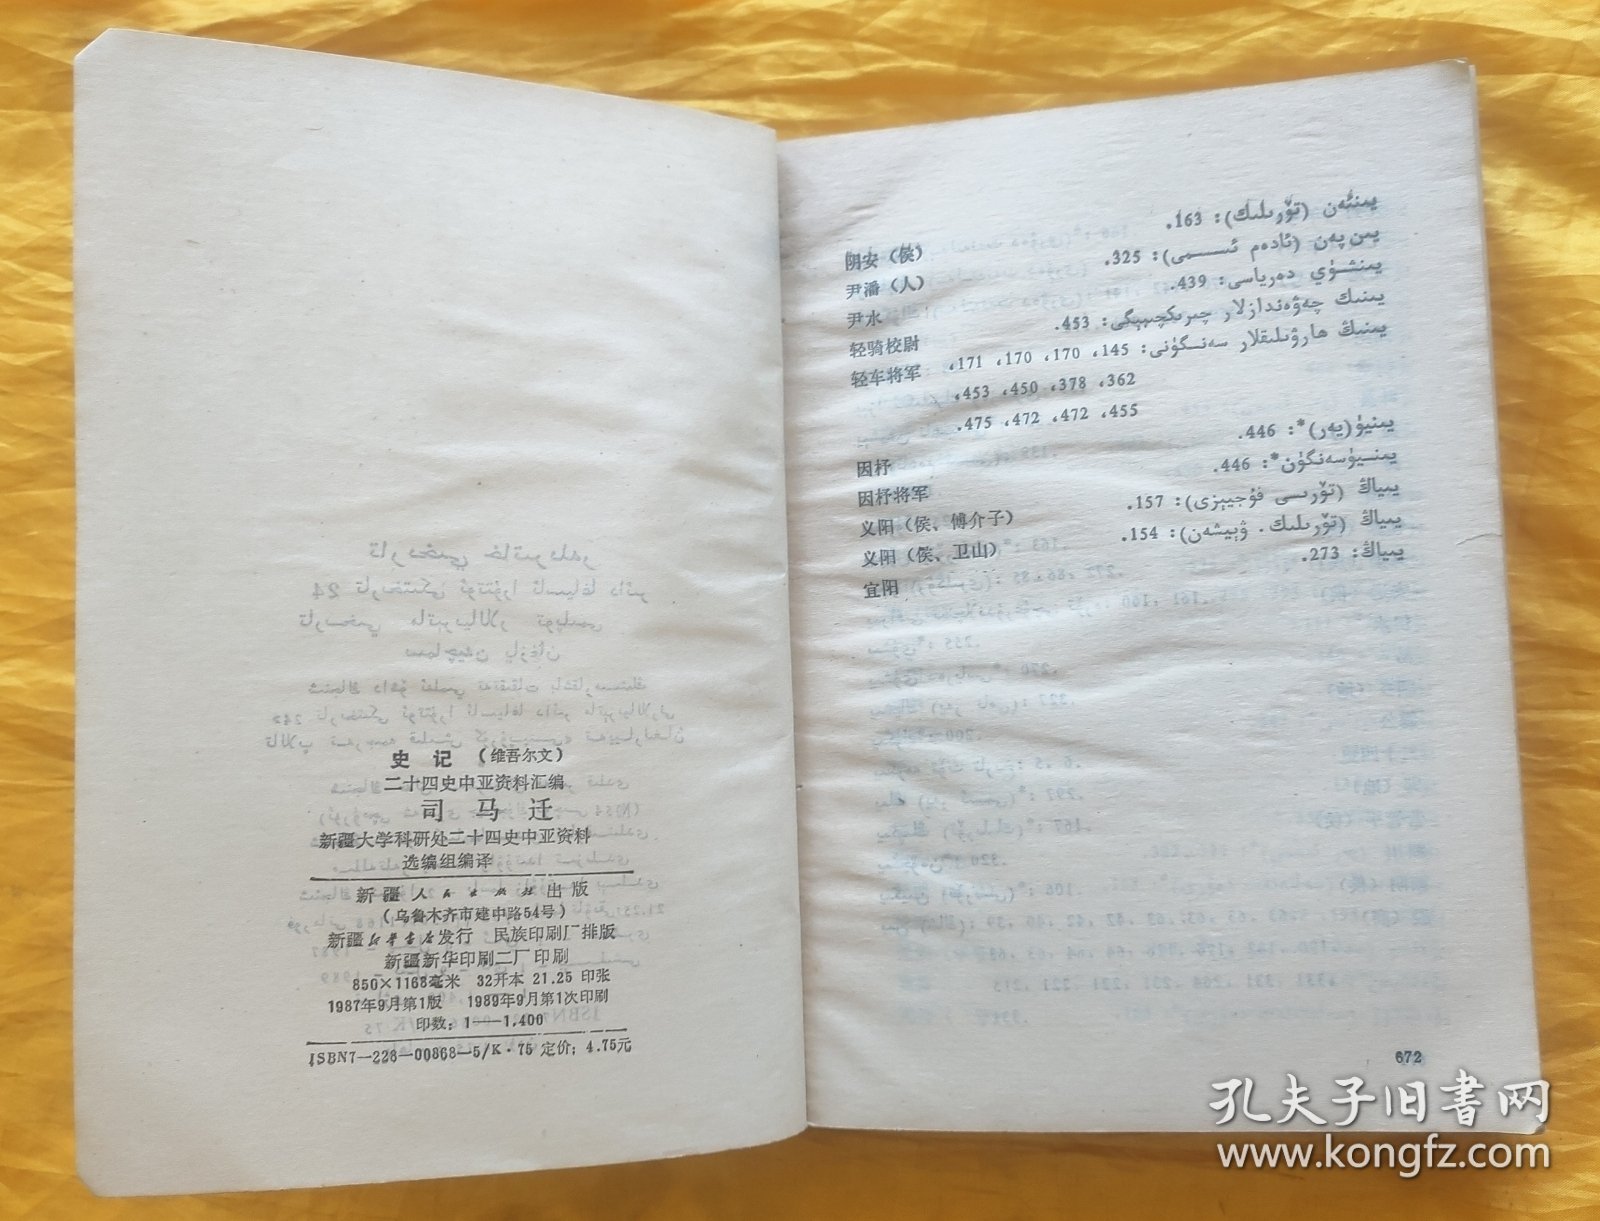 史 记 (维吾尔文)
二十四史中亚资料汇编
司 马 迁
新疆大学科研处二十四史中亚资料
选编组编译
新疆人民出版社出版
(乌鲁木齐市建中路54号)
新疆新华书店发行 民族印刷厂排版
新疆新华印刷二厂印刷
850×1168毫米 32开本 21.25 印张
1987年9月第1版 1989年9月第1次印刷
印数: 1——1,400
ISBN7—228—00868—5/K·75 定价: 4.75元
阴安 (侯) يىنئەن (تۆرىلىك): 163.
尹潘 (人) يىن پەن (ئادەم ئىسمى): 325.
尹水 يىنشۈي دەرياسى: 439.
轻骑校尉 يىنىك چەۋەندازلار چېرىكچىبېگى: 453.
轻车将军 يىنىڭ ھارۋىلىقلار سەنگۈنى: 145، 170، 170، 171،
362، 378، 450، 453،
455، 472، 472، 475.
因杅 يىنيۈ (يەر)*: 446.
因杅将军 يىنيۈسەنگۈن*: 446.
义阳 (侯、傅介子) يىياڭ (تۆرىسى فۇجيېزى): 157.
义阳 (侯、卫山) يىياڭ (تۆرىلىك. ۋېيشەن): 154.
宜阳 يىياڭ: 273.
672
孔夫子旧书网
www.kongfz.com